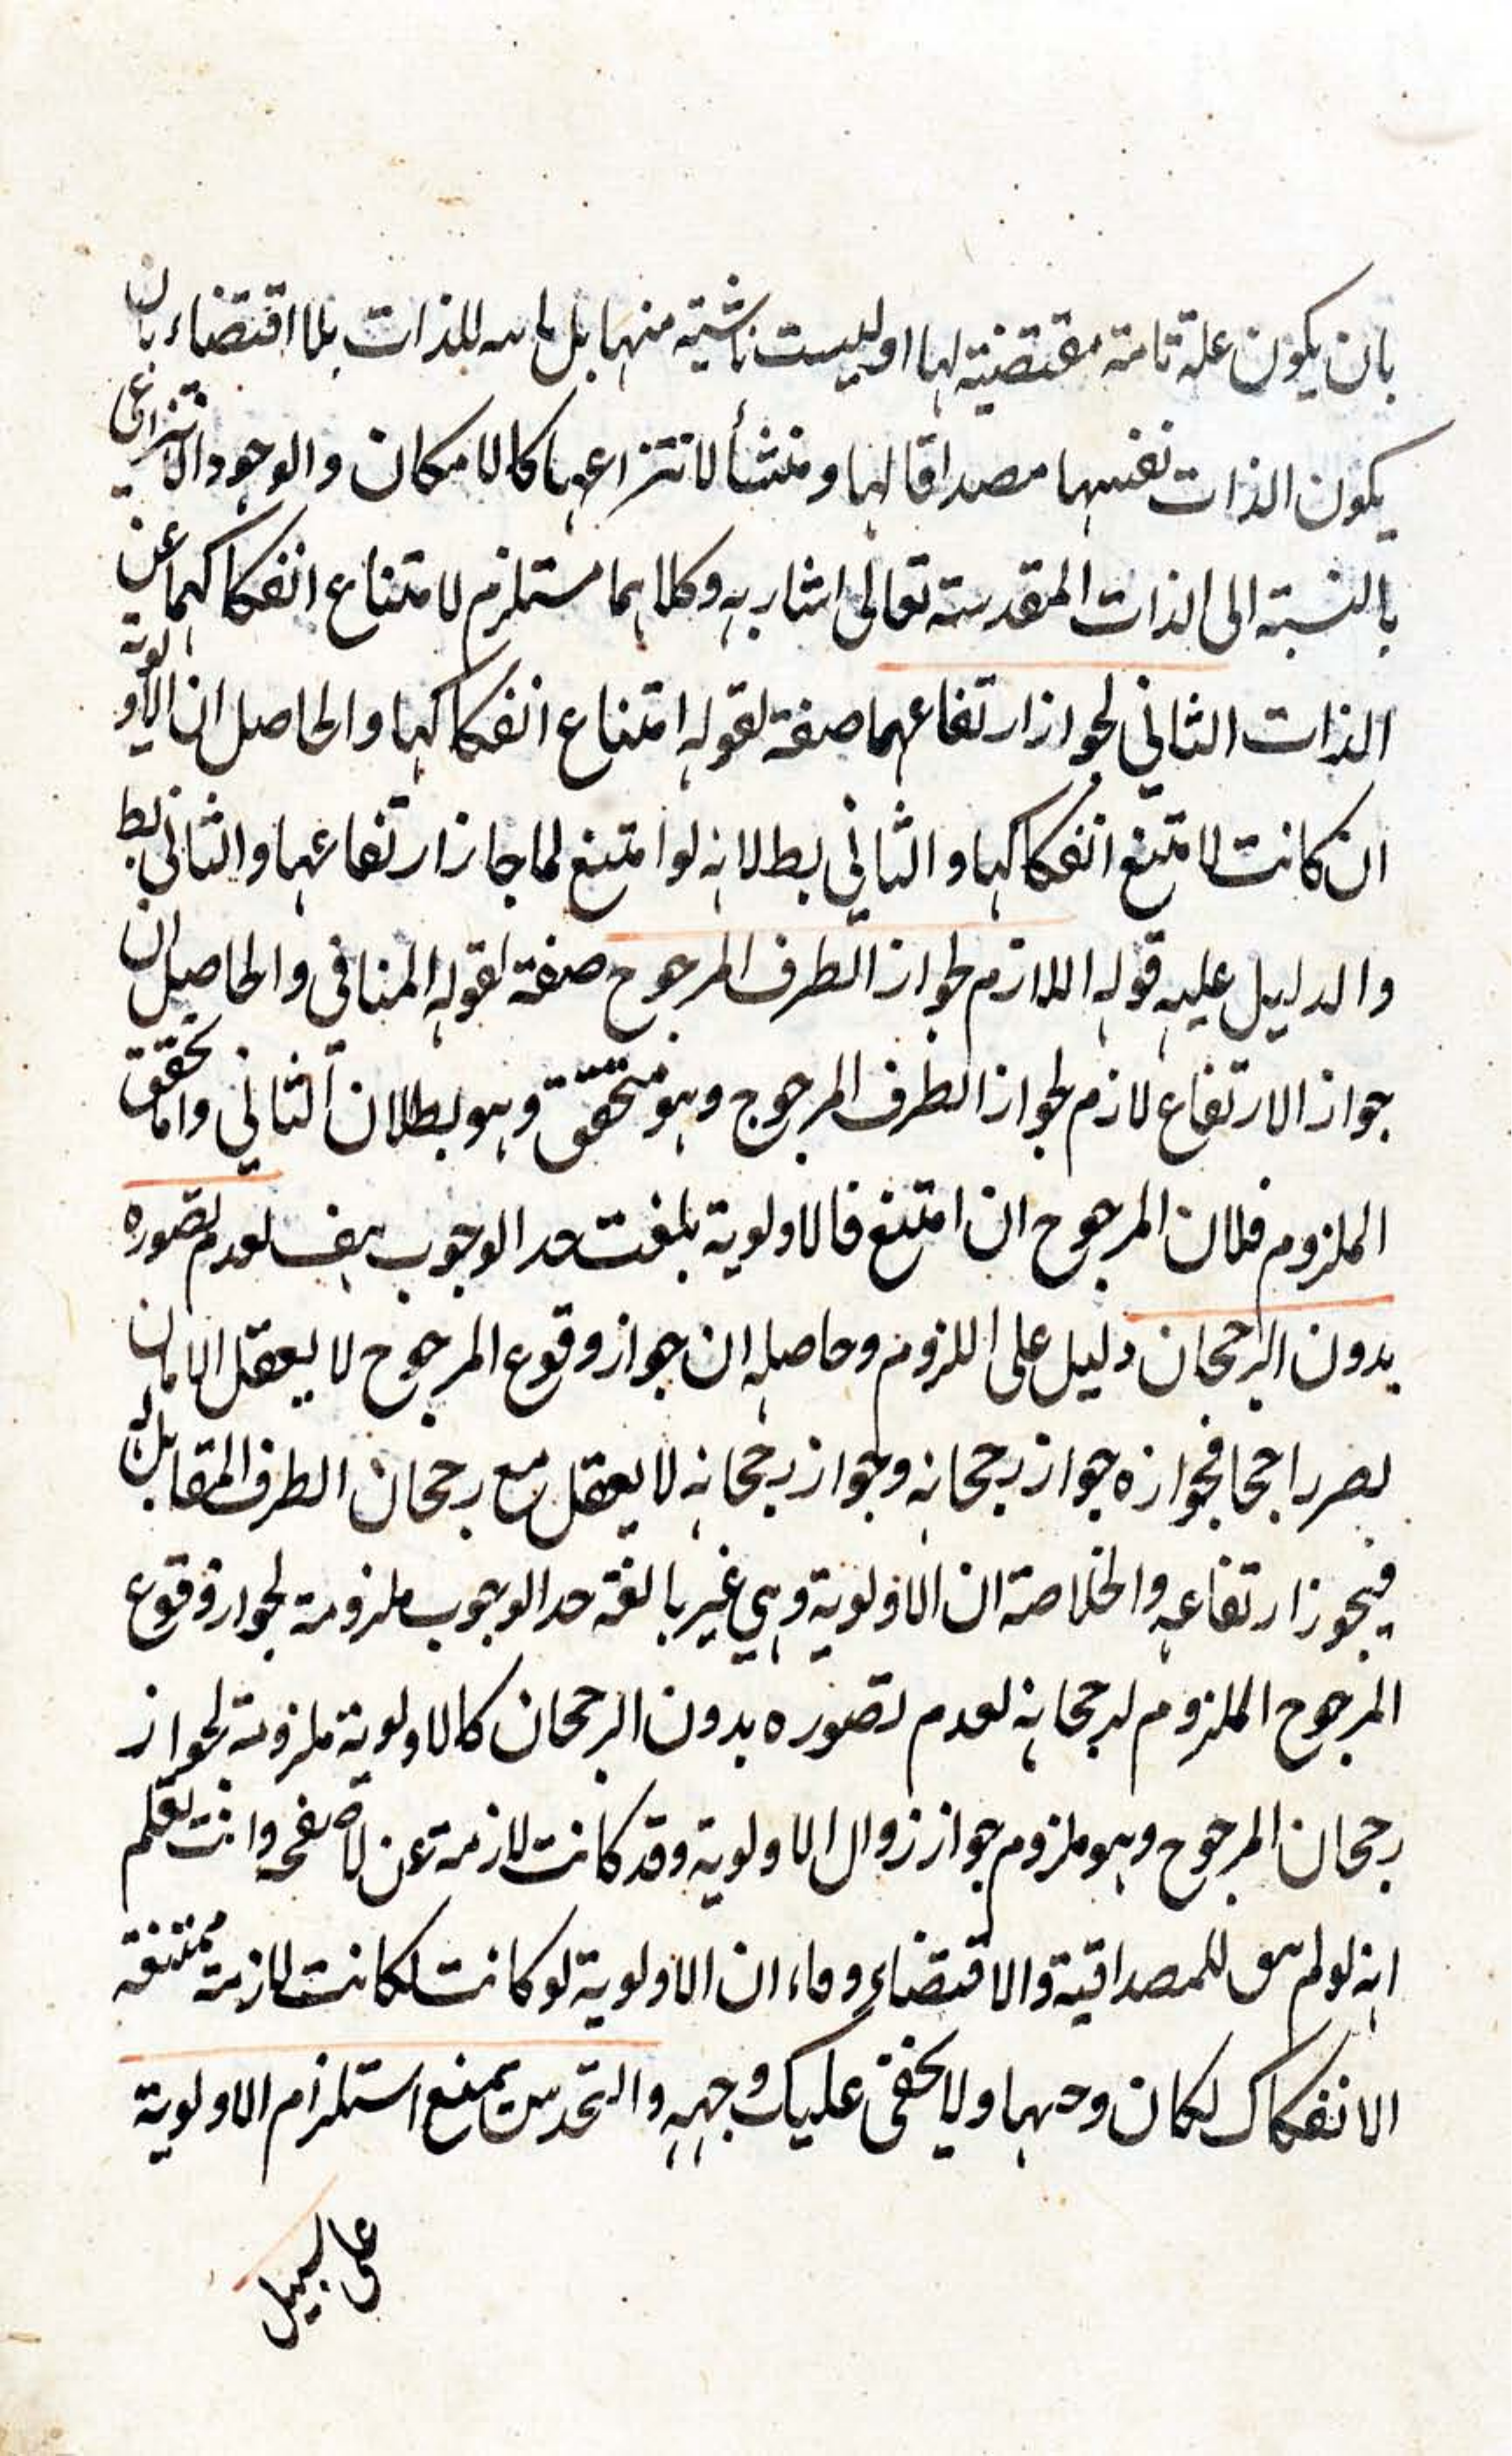 بان يكون علة تامة مقتضية لها او ليست ناشية منها بل للذات بلا اقتضاء بان
يكون الذات نفسها مصداقا لها ومنشأ لانتزاعها كالامكان والوجود الانتزاعي
بالنسبة الى الذات المقدسة تعالى اشار به وكلاهما مستلزم لامتناع انفكاكهما عن
الذات الثاني لجواز ارتفاعهما صفة لقوله امتناع انفكاكها والحاصل ان الاولوية
ان كانت لامتنع انفكاكها والثاني بط لانه لو امتنع لما جاز ارتفاعها والثاني بط
والدليل عليه قوله اللازم لجواز الطرف المرجوح صفة لقوله المنافي والحاصل ان
جواز الارتفاع لازم لجواز الطرف المرجوح وهو متحقق وهو بطلان الثاني واما تحقق
الملزوم فلان المرجوح ان امتنع فالاولوية بلغت حد الوجوب هف لعدم تصوره
بدون الرجحان دليل على اللزوم وحاصله ان جواز وقوع المرجوح لا يعقل الا بان
يصير راجحا فجوازه جواز رجحانه وجواز رجحانه لا يعقل مع رجحان الطرف المقابل له
فيجوز ارتفاعه والخلاصة ان الاولوية وهي غير بالغة حد الوجوب ملزومة لجواز وقوع
المرجوح الملزوم لرجحانه لعدم تصوره بدون الرجحان كالاولوية ملزومة لجواز
رجحان المرجوح وهو ملزوم جواز زوال الاولوية وقد كانت لازمة عن وانت تعلم
انه لو لم للمصداقية والاقتضاء ان الاولوية لو كانت لكانت لازمة ممتنعة
الانفكاك لكان ولا يخفى عليك وجهه والتحدس بمنع استلزام الاولوية
على سبيل